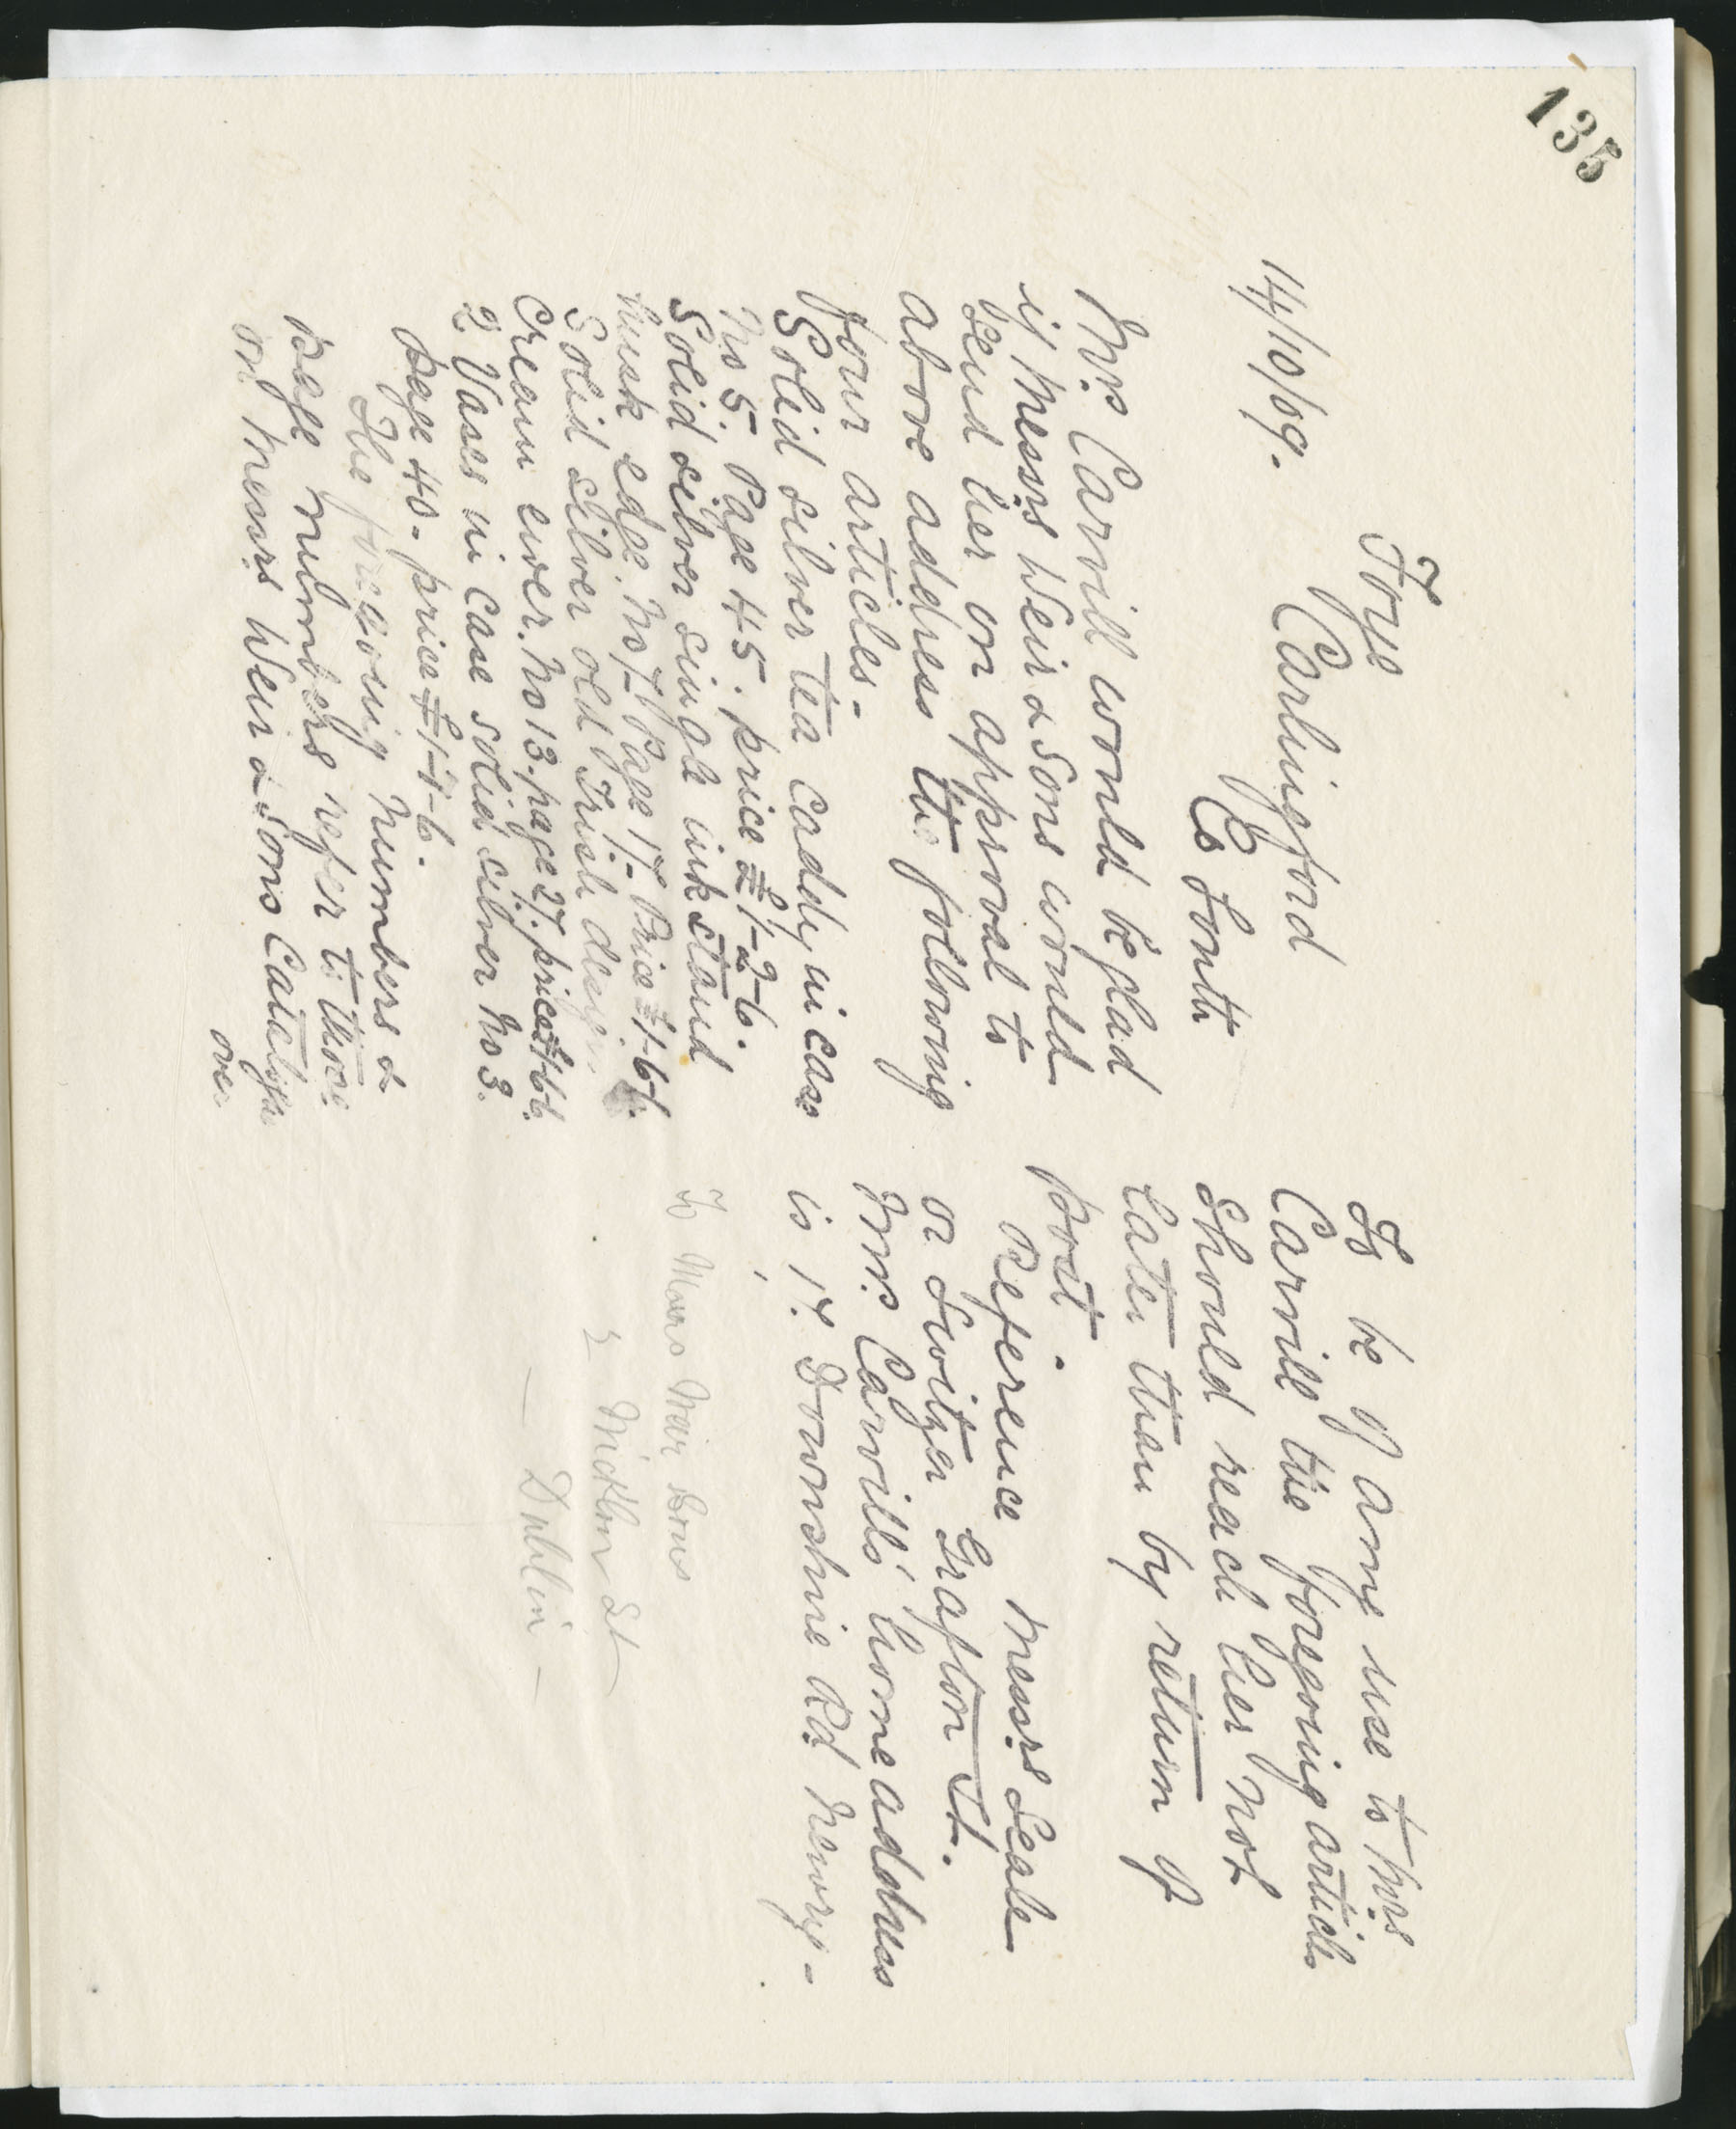 135
Foye
Carlingford
Co Louth
14/10/09.
Mrs Carvill would be glad
if Messrs Weir & Sons would
send her on approval to
above address the following
four articles -
Solid silver tea caddy in case
No 5 Page 45. price £1-2-6.
Solid silver single inkstand
husk edge. No 7 Page 17- Price £1-6-6.
Solid silver old Irish design
Cream ewer. No 13. page 27. price £1-6-6.
2 Vases in case solid silver No 3.
page 40- price £1-1-6.
The foregoing numbers &
page numbers refer to those
on Messrs Weir & Sons Catalogue
over
To be of any use to Mrs
Carvill the foregoing articles
should reach her not
later than by return of
post.
Reference Messrs Leale
or Switzer Grafton St.
Mrs Carvills' home address
is 17. Downshire Rd. Newry-
To Messrs Weir Sons
Wicklow St
— Dublin —